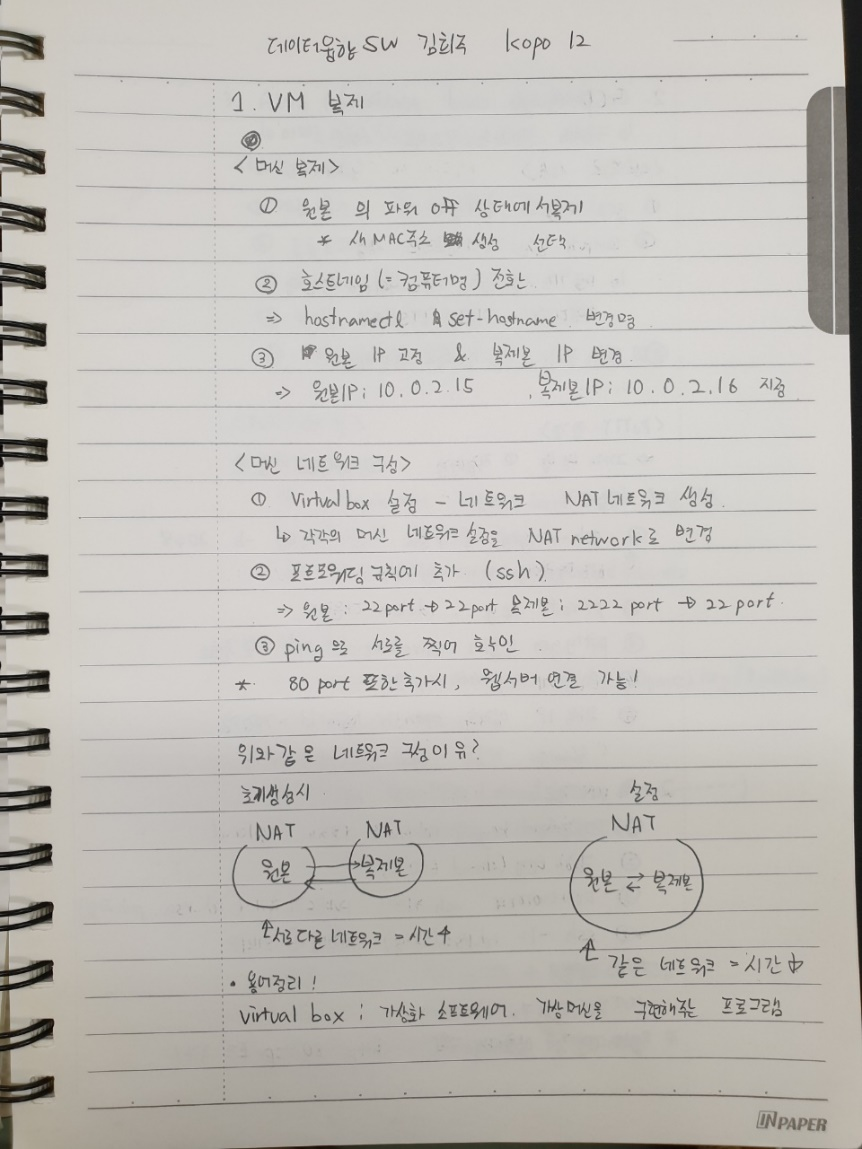 데이터융합SW 김희주 kopo 12
1. VM 복제
<머신 복제>
① 원본 의 파워 off 상태에서복제
* 새MAC주소 생성 선택
② 호스트네임(=컴퓨터명) 전환
⇒ hostnamectl set-hostname 변경명
③ 원본 IP 고정 & 복제본 IP 변경
⇒ 원본IP: 10.0.2.15 복제본IP: 10.0.2.16 지정
<머신 네트워크 구성>
① Virtual box 설정 - 네트워크 NAT네트워크 생성
↳ 각각의 머신 네트워크 설정을 NAT network로 변경
② 포트포워딩 규칙에 추가 (ssh)
⇒ 원본 : 22port → 22port 복제본 : 2222 port → 22 port.
③ ping으로 서로를 찍어 확인
* 80 port 또한추가시, 웹서버 연결 가능!
위와같은 네트워크 구성이유?
초기생성시 설정
NAT NAT NAT
원본 → 복제본 원본 ⇄ 복제본
↑서로다른네트워크 = 시간↑
↑ 같은 네트워크 = 시간↓
• 용어정리!
virtual box : 가상화 소프트웨어. 가상머신을 구현해주는 프로그램
INPAPER